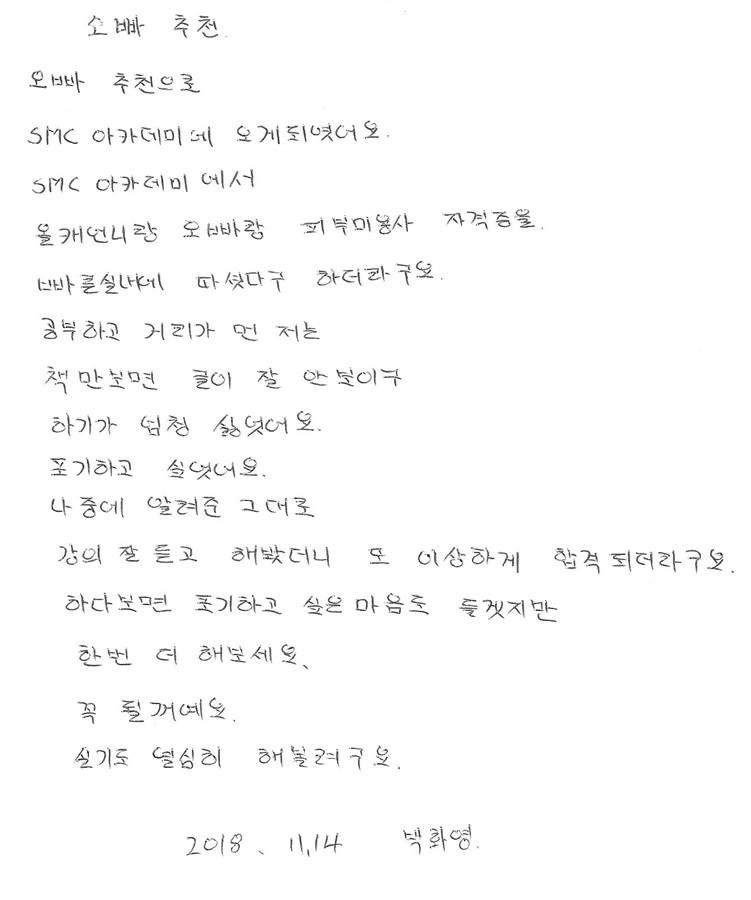 오빠 추천.
오빠 추천으로
SMC 아카데미에 오게되엿어요.
SMC 아카데미에서
올캐언니랑 오빠랑 피부미용사 자격증을.
빠른실내에 따셧다구 하더라구요.
공부하고 거리가 먼 저는
책만보면 글이 잘 안보이구
하기가 엄청 싫엇어요.
포기하고 싶엇어요.
나중에 알려준 그대로
강의 잘 듣고 해봤더니 또 이상하게 합격되더라구요.
하다보면 포기하고 싶은마음도 들겟지만
한번 더 해보세요.
꼭 될꺼예요.
실기도 열심히 해볼려구요.
2018. 11.14 화영.